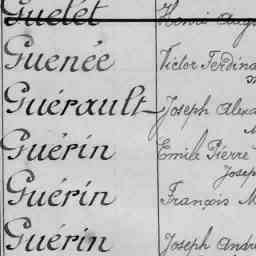 Guelet Henri Aug
Guenée Victor Ferdina
Guérault Joseph Alexa
Guérin Emile Pierre
Joseph
Guérin François M
Guérin Joseph André